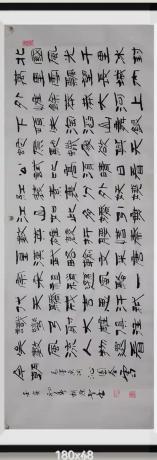 北國風光千里冰封
萬里雪飄望長城內
外惟餘莽莽大河上
下頓失滔滔山舞銀
蛇原馳蠟象欲與天
公試比高須晴日看
紅裝素裹分外妖嬈
江山如此多嬌引無
數英雄競折腰惜秦
皇漢武略輸文采唐
宗宋祖稍遜風騷一
代天驕成吉思汗只
識彎弓射大雕俱往
矣數風流人物還看
今朝
毛澤東詞沁園春雪
180x48